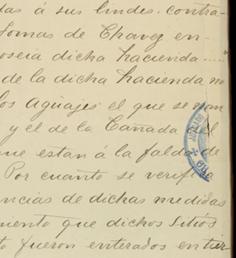 das á sus lindes contra-
Tomas de Chavez en-
oseia dicha hacienda
de la dicha hacienda
los Aguajes el que se
y el de la Cañada
ue estan á la falda de
Por cuanto se verif
ncias de dichas medidas
mento que dichos Sitios
to fueron enterados en